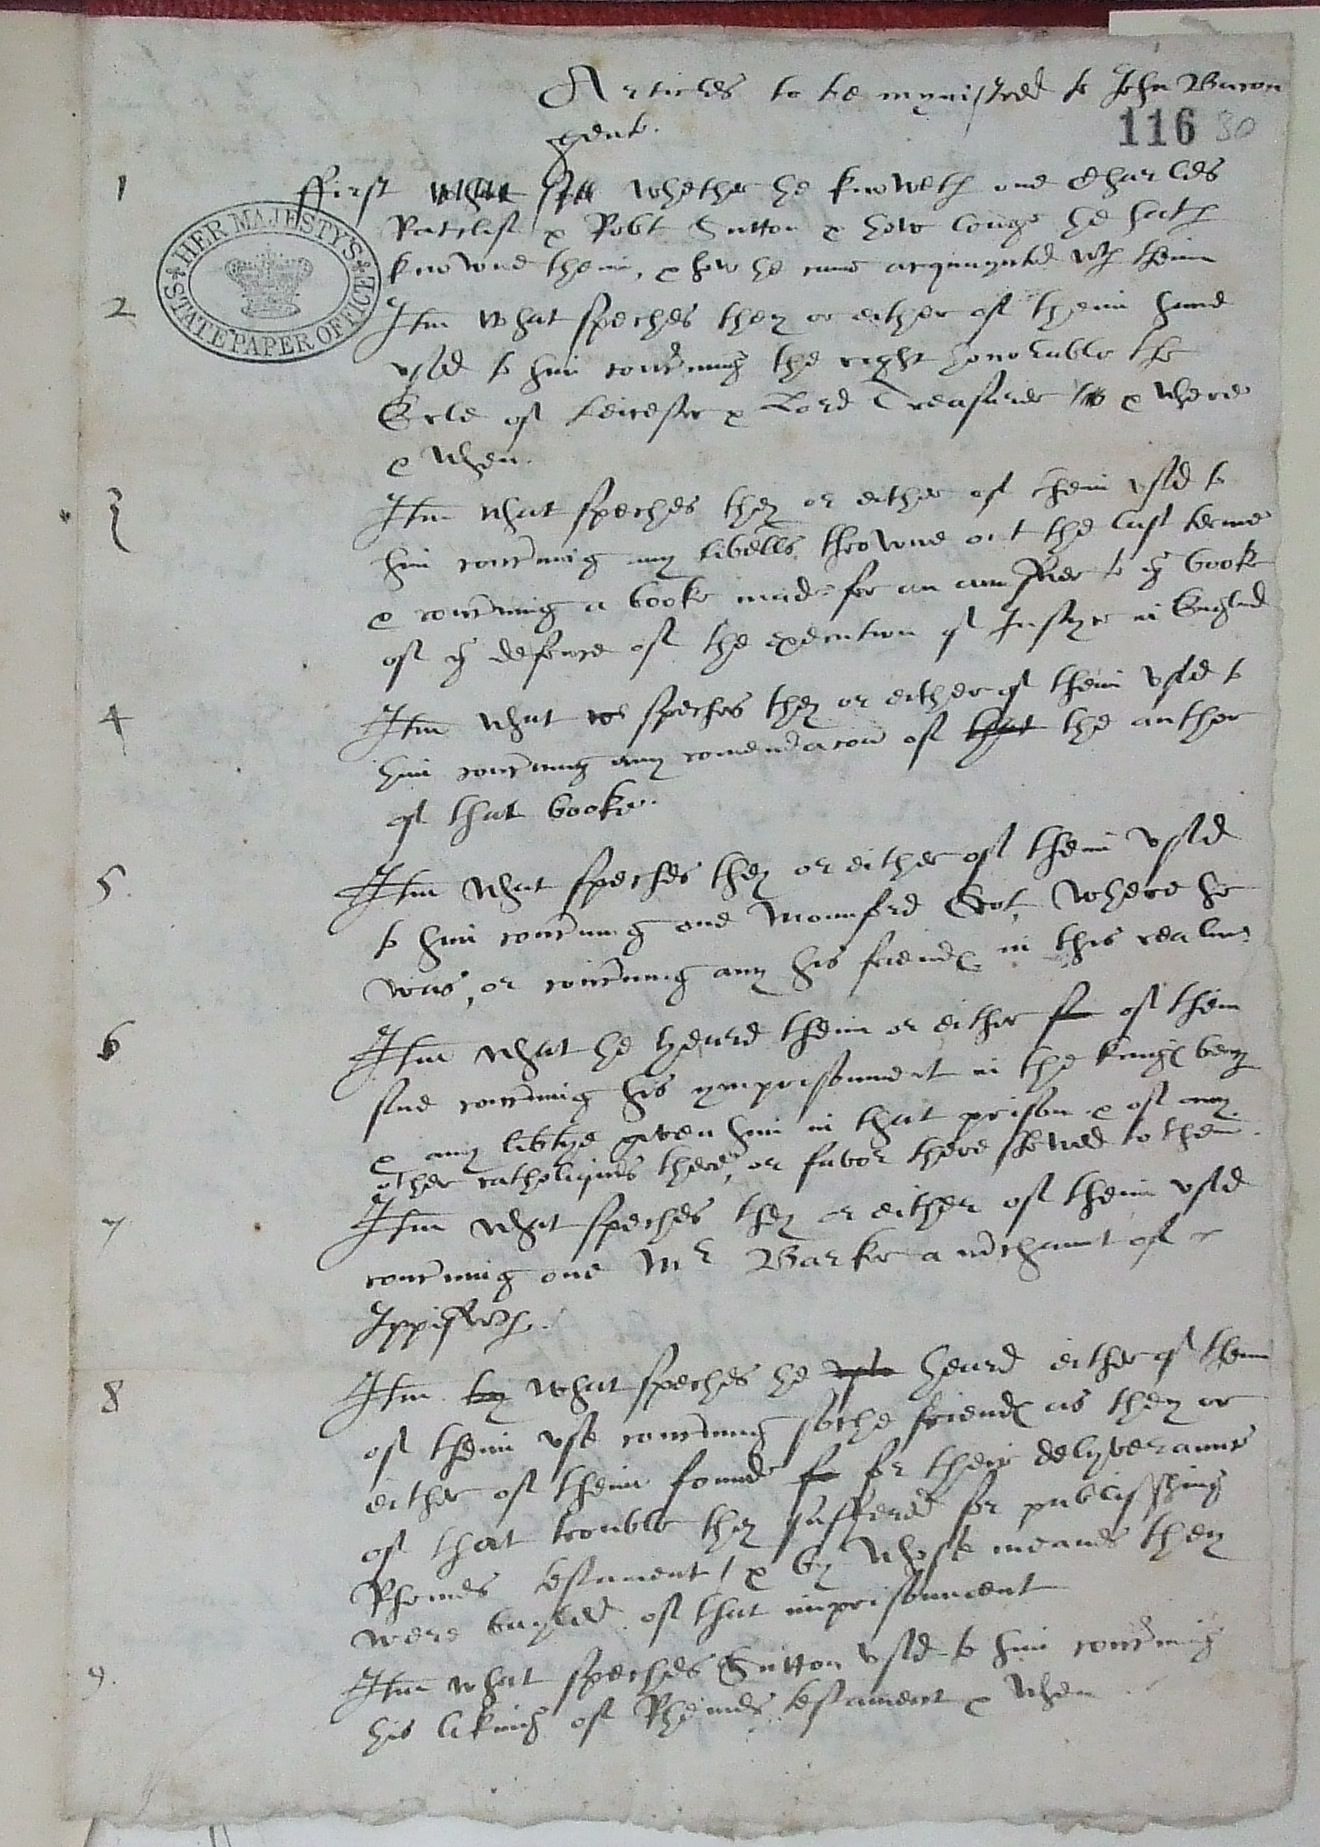 Articles to be mynistred to John Bacon
gent.
116 80
1 ffirst whether he knoweth one Charles
Ratclif & Robt Sutton & how longe he hath
knowne them, & how he came acquaynted wth them
HER MAJESTY'S STATE PAPER OFFICE
2 Itm what speches they or either of them have
vsed to him concrning the right honorable the
Erle of Leicester & Lord Treasurer & where
& when.
3 Itm what speches they or either of them vsed to
him concrning any libells throwne out the last terme
& concrning a booke made for an answer to ye booke
of ye defence of the execution of Justyce in England
4 Itm what speches they or either of them vsed to
him concrning any comendacon of that the author
of that booke.
5. Itm what speches they or either of them vsed
to him concrning one Mounford Scot, where he
was, or concrning any his friends in this realme
6 Itm what he heard them or either of them
saie concrning his ymprisonment in the kings bench
& any libtye geven him in that prison & of any
other catholiques there, or favor there shewed to them.
7 Itm what speches they or either of them vsed
concrning one Mr Barker a mchaunt of
Ippiswch.
8 Itm by what speches he vsed heard either of them
of them vse concrning soche friends as they or
either of them founde for for their delyveraunce
of that trouble they suffered for publisshing
Rhemes testament / & by whose meanes they
were bayled of that imprisonment
9. Itm what speches Sutton vsed to him concrning
his liking of Rhemes testament & when